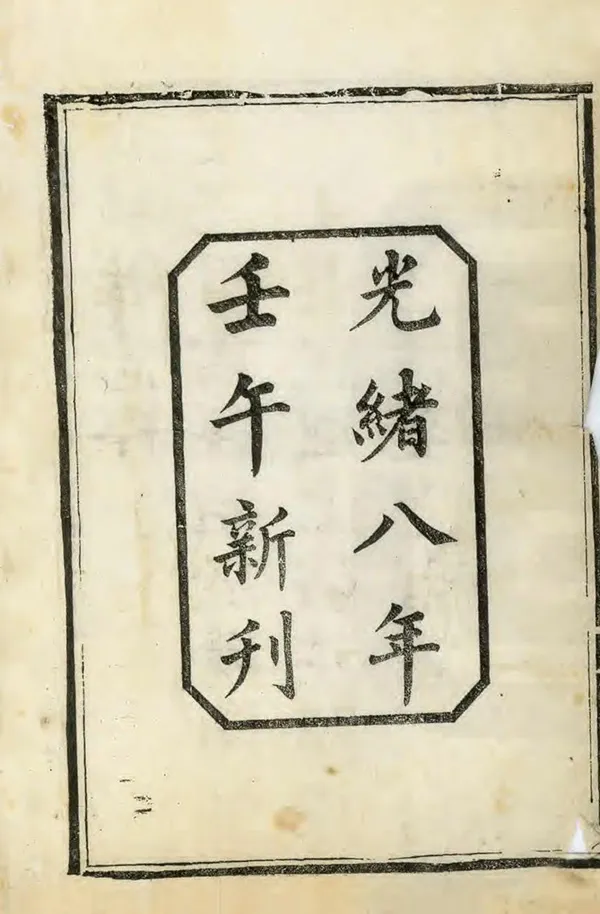 光緒八年
壬午新刊